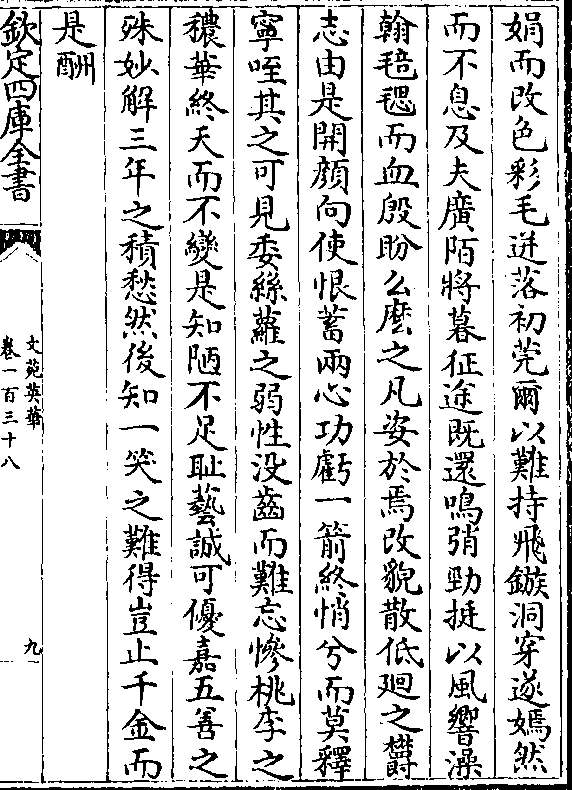 娟而改色彩毛迸落初莞爾以難持飛鏃洞穿遂嫣然
而不息及夫廣陌將暮征途既還鳴弰勁挺以風響澡
翰毰毸而血殷盼么麽之凡姿於焉改貌散低廻之鬱
志由是開顔向使恨蓄兩心功虧一箭終悄兮而莫釋
寧咥其之可見委絲蘿之弱性没齒而難忘慘桃李之
穠華終天而不變是知陋不足耻藝誠可優嘉五善之
殊妙解三年之積愁然後知一笑之難得豈止千金而
是酬
欽定四庫全書
文苑英華
卷一百三十八
九